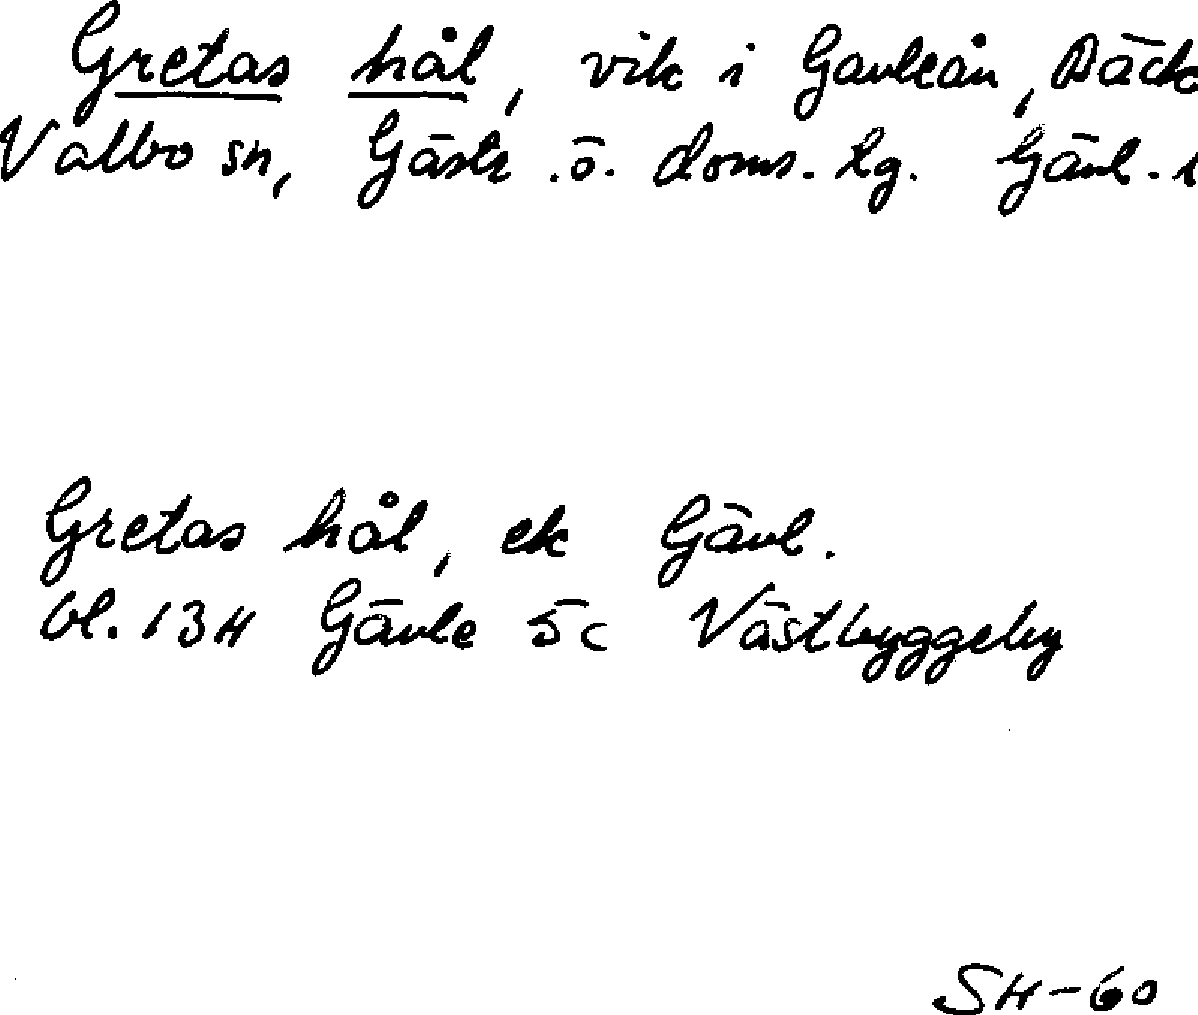 Gretas hål, vik i Gavleån, Bäck
Valbo sn, Gästr. ö. doms. tg. Gävl. l
Gretas hål, ek Gävl.
bl. 13H Gävle 5c Västbyggeby
SH-60